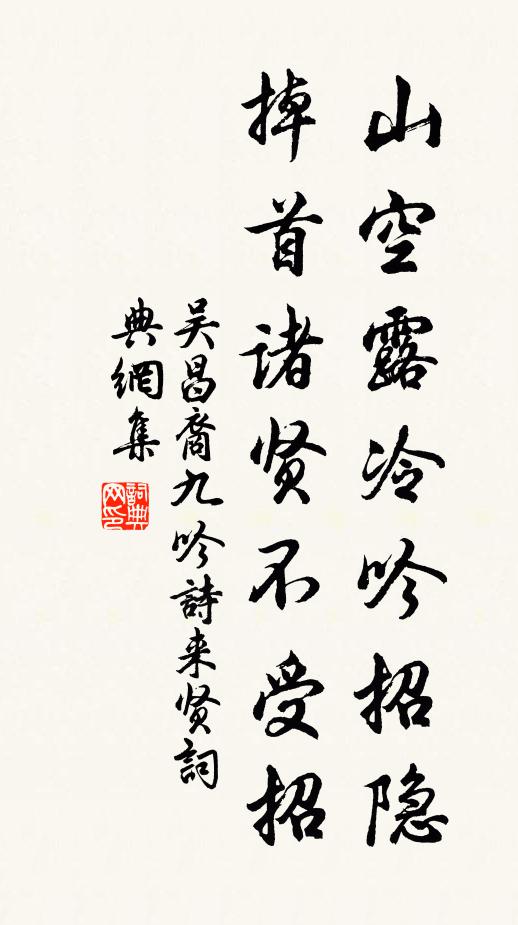 山空露冷吟招隐
掉首诸贤不受招
吴昌裔九吟詩来贤詞
典網集
詞典网印